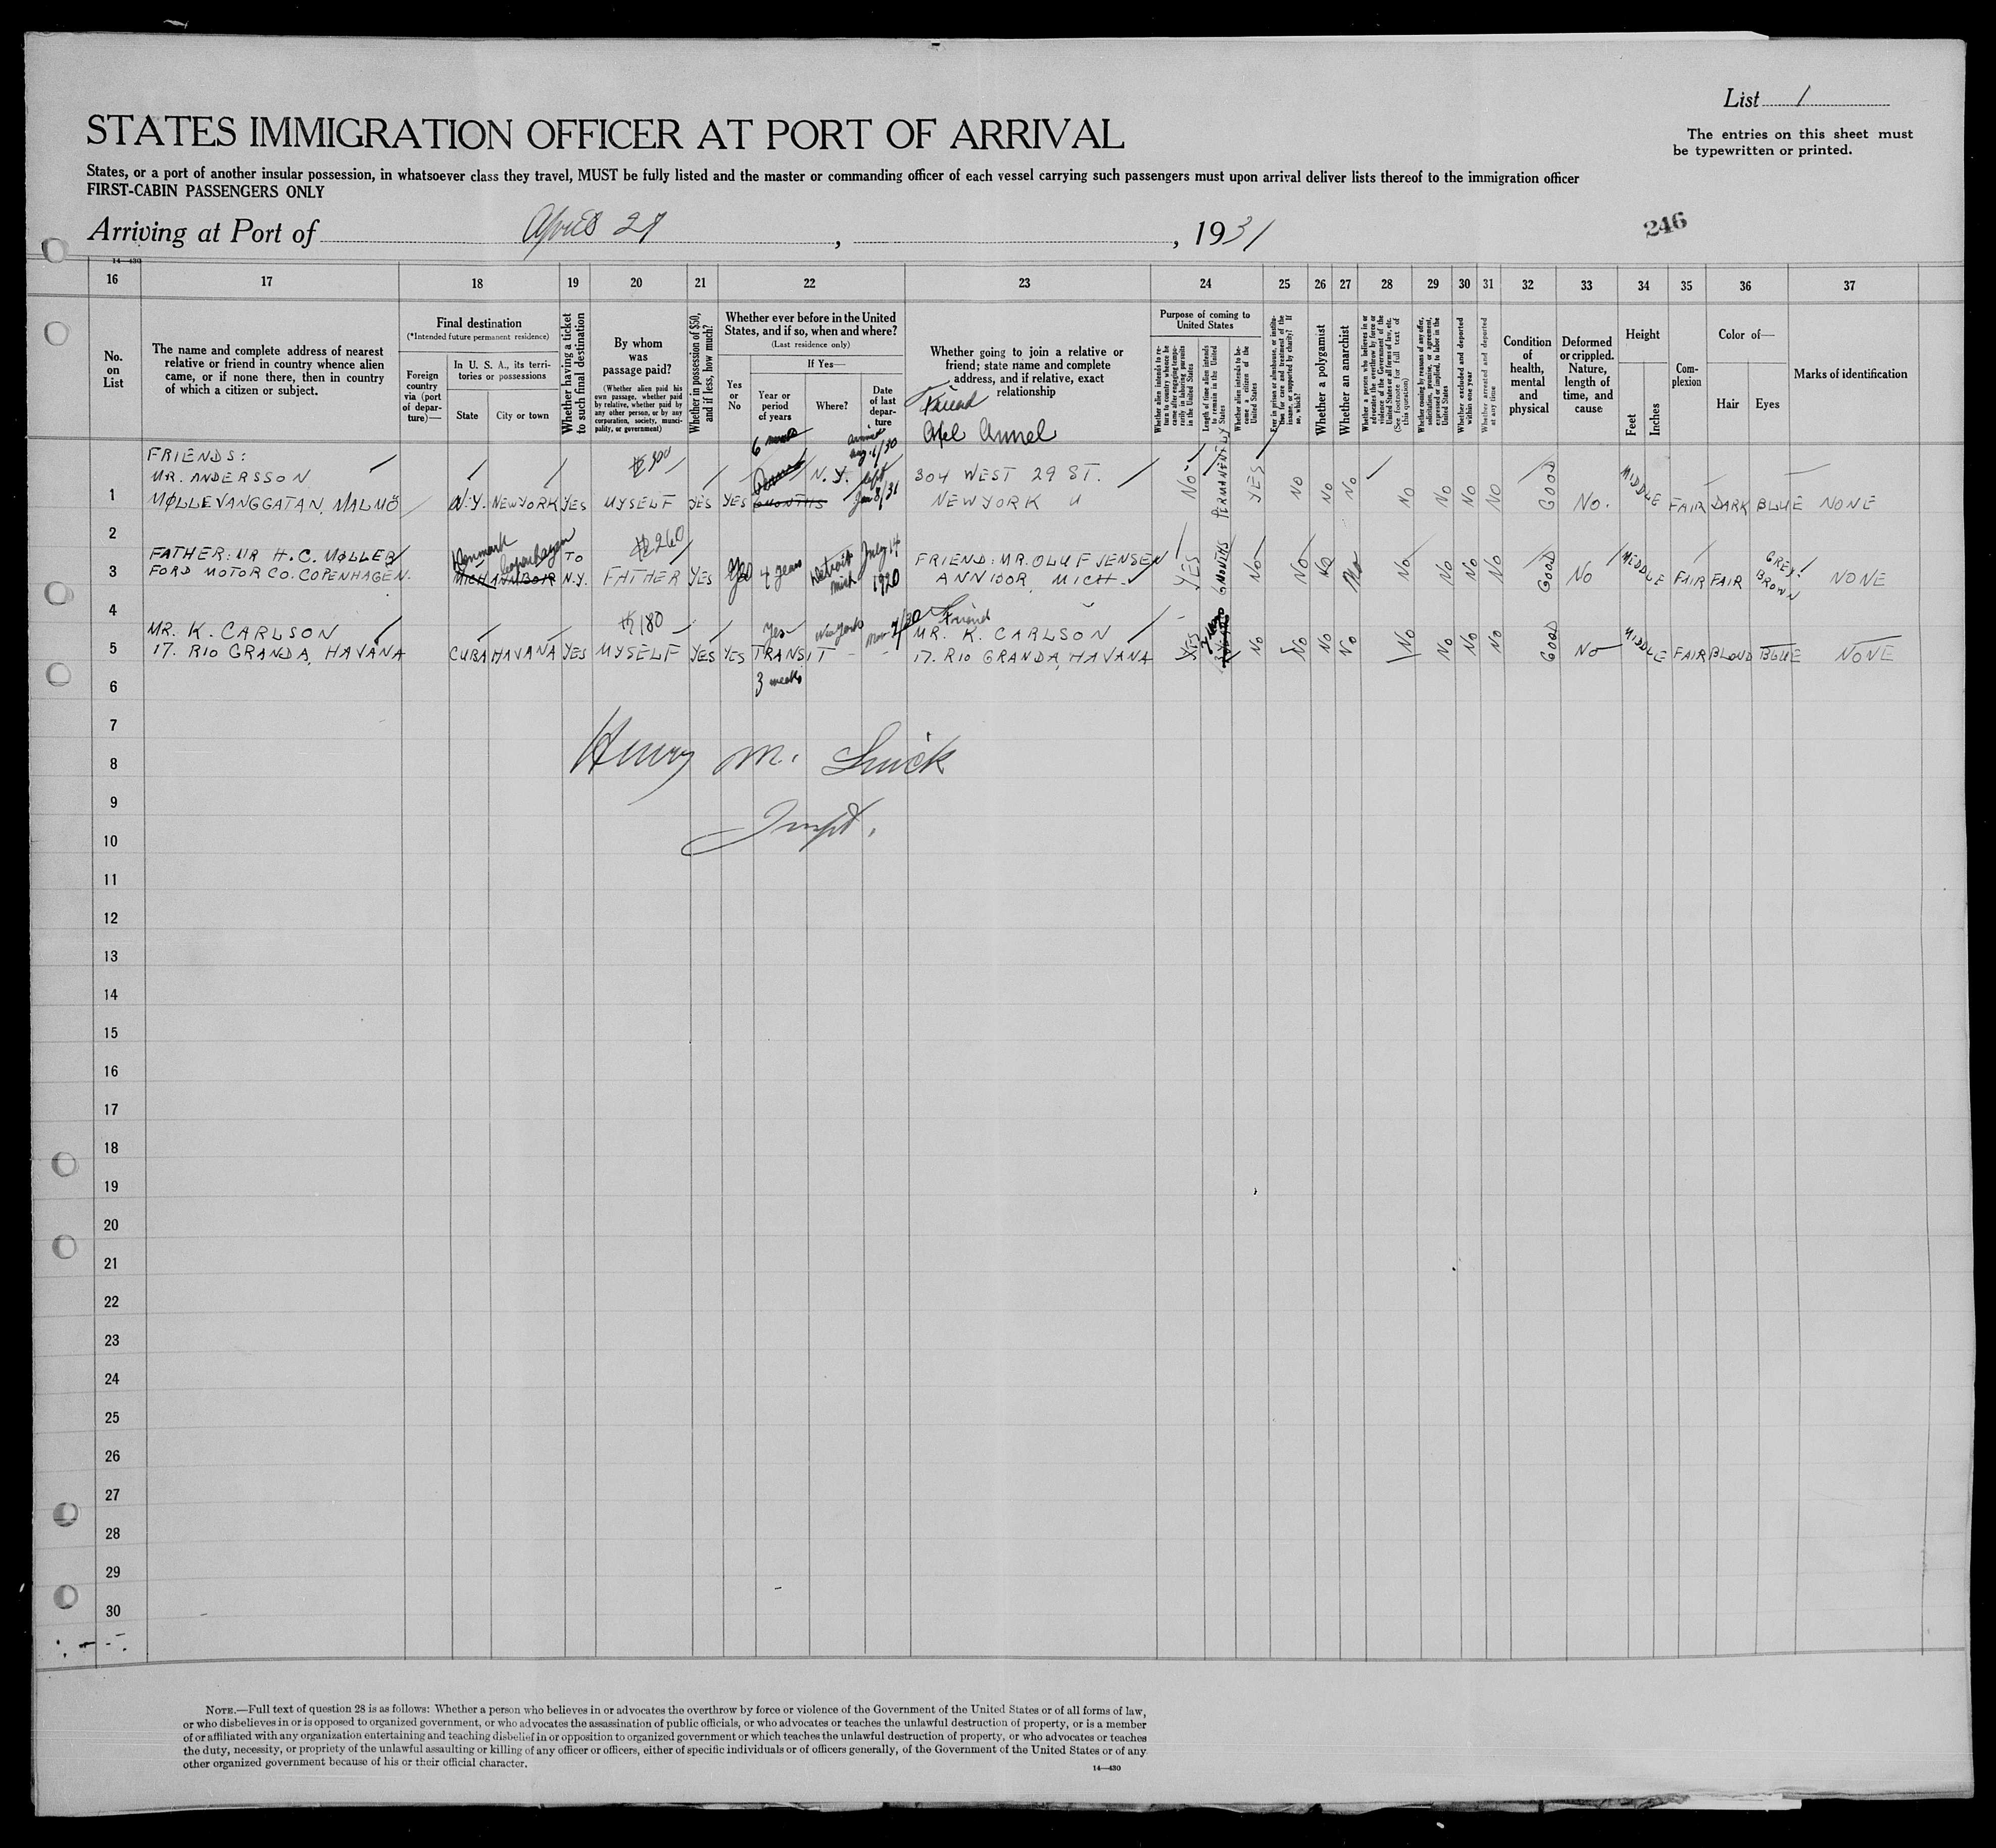 List 1
STATES IMMIGRATION OFFICER AT PORT OF ARRIVAL
The entries on this sheet must
be typewritten or printed.
States, or a port of another insular possession, in whatsoever class they travel, MUST be fully listed and the master or commanding officer of each vessel carrying such passengers must upon arrival deliver lists thereof to the immigration officer
FIRST-CABIN PASSENGERS ONLY
Arriving at Port of April 27, , 1931
246
14—430
16 17 18 19 20 21 22 23 24 25 26 27 28 29 30 31 32 33 34 35 36 37
No.
on
List
The name and complete address of nearest
relative or friend in country whence alien
came, or if none there, then in country
of which a citizen or subject.
Final destination
(*Intended future permanent residence)
Foreign
country
via (port
of depar-
ture)—
In U. S. A., its terri-
tories or possessions
State
City or town
Whether having a ticket
to such final destination
By whom
was
passage paid?
(Whether alien paid his
own passage, whether paid
by relative, whether paid by
any other person, or by any
corporation, society, munici-
pality, or government)
Whether in possession of $50,
and if less, how much?
Whether ever before in the United
States, and if so, when and where?
(Last residence only)
Yes
or
No
If Yes—
Year or
period
of years
Where?
Date
of last
depar-
ture
Whether going to join a relative or
friend; state name and complete
address, and if relative, exact
relationship
Purpose of coming to
United States
Whether alien intends to re-
turn to country whence he
came after engaging tempo-
rarily in laboring pursuits
in the United States
Length of time alien intends
to remain in the United
States
Whether alien intends to be-
come a citizen of the
United States
Ever in prison or almshouse, or institu-
tion for care and treatment of the
insane, or supported by charity? If
so, which?
Whether a polygamist
Whether an anarchist
Whether a person who believes in or
advocates the overthrow by force or
violence of the Government of the
United States or all forms of law, etc.
(See footnote for full text of
this question)
Whether coming by reason of any offer,
solicitation, promise, or agreement,
expressed or implied, to labor in the
United States
Whether excluded and deported
within one year
Whether arrested and deported
at any time
Condition
of
health,
mental
and
physical
Deformed
or crippled.
Nature,
length of
time, and
cause
Height
Feet
Inches
Com-
plexion
Color of—
Hair
Eyes
Marks of identification
Friend
Axel
FRIENDS:
MR. ANDERSSON $300 6 Aug. 6/30
N.Y. left 304 WEST 29 ST.
1 MØLLEVANGGATAN, MALMÖ N.Y. NEWYORK YES MYSELF YES YES 6 MONTHS Jan 8/31 NEWYORK NO PERMANENTLY YES NO NO NO NO NO NO NO GOOD NO. MIDDLE FAIR DARK BLUE NONE
2
Denmark Copenhagen $260
FATHER: MR H.C. MØLLER TO July 14 FRIEND: MR. OLUF JENSEN
3 FORD MOTOR CO. COPENHAGEN. MICH ANNBOR N.Y. FATHER YES Yes 4 years Detroit Mich 1920 ANNBOR, MICH. YES 6 MONTHS NO NO NO No NO NO NO NO GOOD NO MIDDLE FAIR FAIR GREY BROWN NONE
4
$180 Yes New York Nov 7/30 Friend
MR. K. CARLSON MR. K. CARLSON
5 17. RIO GRANDA, HAVANA CUBA HAVANA YES MYSELF YES YES TRANSIT 17. RIO GRANDA, HAVANA YES NO NO NO NO NO NO NO NO GOOD NO MIDDLE FAIR BLOUD BLUE NONE
6 3 weeks
7
Henry M.
8
9
Inspt.
10
11
12
13
14
15
16
17
18
19
20
21
22
23
24
25
26
27
28
29
30
NOTE.—Full text of question 28 is as follows: Whether a person who believes in or advocates the overthrow by force or violence of the Government of the United States or of all forms of law,
or who disbelieves in or is opposed to organized government, or who advocates the assassination of public officials, or who advocates or teaches the unlawful destruction of property, or is a member
of or affiliated with any organization entertaining and teaching disbelief in or opposition to organized government or which teaches the unlawful destruction of property, or who advocates or teaches
the duty, necessity, or propriety of the unlawful assaulting or killing of any officer or officers, either of specific individuals or of officers generally, of the Government of the United States or of any
other organized government because of his or their official character.
14—430